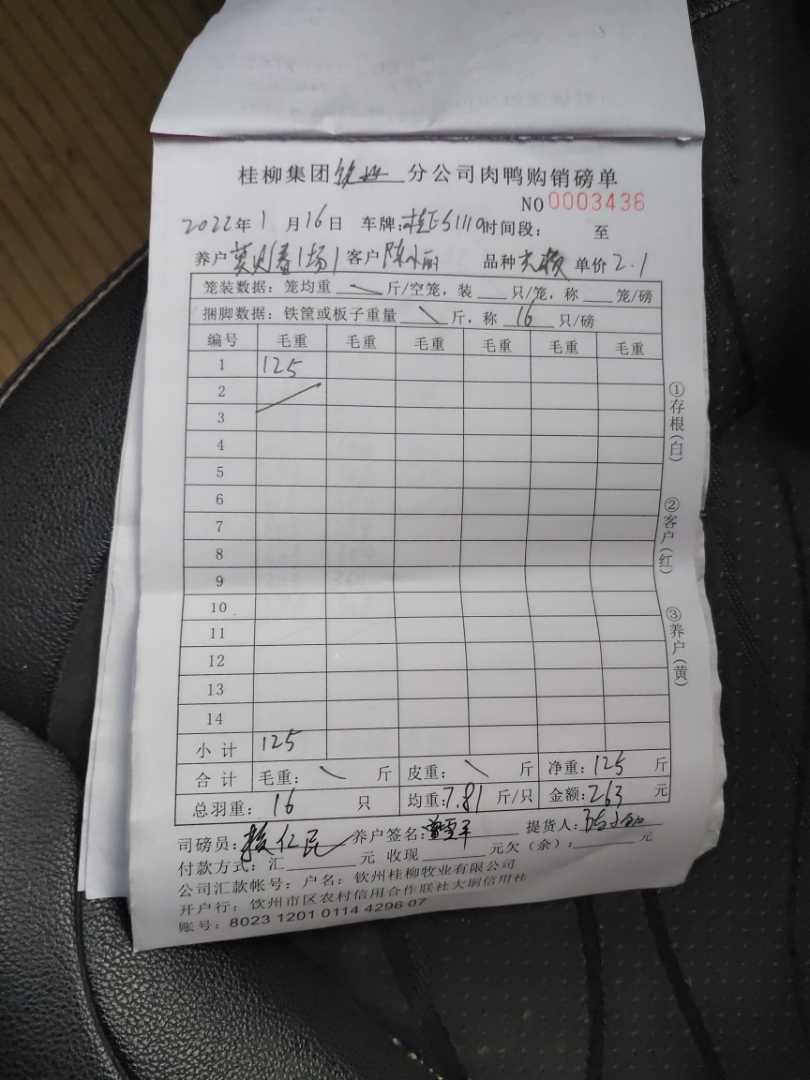 桂柳集团钦州分公司肉鸭购销磅单
NO 0003436
2022年1月16日 车牌:桂ES1110 时间段: 至
养户 客户 陈小丽 品种 单价 2.1
笼装数据:笼均重 斤/空笼,装 只/笼,称 笼/磅
捆脚数据:铁筐或板子重量 斤,称 16 只/磅
编号 毛重 毛重 毛重 毛重 毛重 毛重
1 125
2
3
4
5
6
7
8
9
10
11
12
13
14
小计 125
合计 毛重: 斤 皮重: 斤 净重:125 斤
总羽重:16 只 均重:7.81 斤/只 金额:263 元
司磅员: 养户签名: 提货人:
付款方式:汇 元 收现 元欠(余): 元
公司汇款帐号:户名:钦州桂柳牧业有限公司
开户行:钦州市区农村信用合作联社大垌信用社
账号:8023 1201 0114 4296 07
①存根(白)
②客户(红)
③养户(黄)